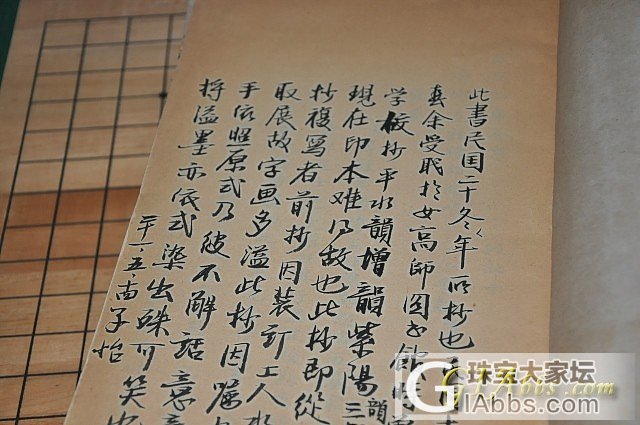 此書民国二十冬年所抄也
余受職於女高師圖书館
学校抄平水韻增韻紫陽韻三
現在印本难得故也此抄即從
抄複写者前抄因装訂工人
取展故字画多溢此抄因嘱
手依照原式乃彼不解話意
将溢墨亦依式染出殊可笑也
二十一·五·
子怡
珠宝大家坛
GlAbbs.com